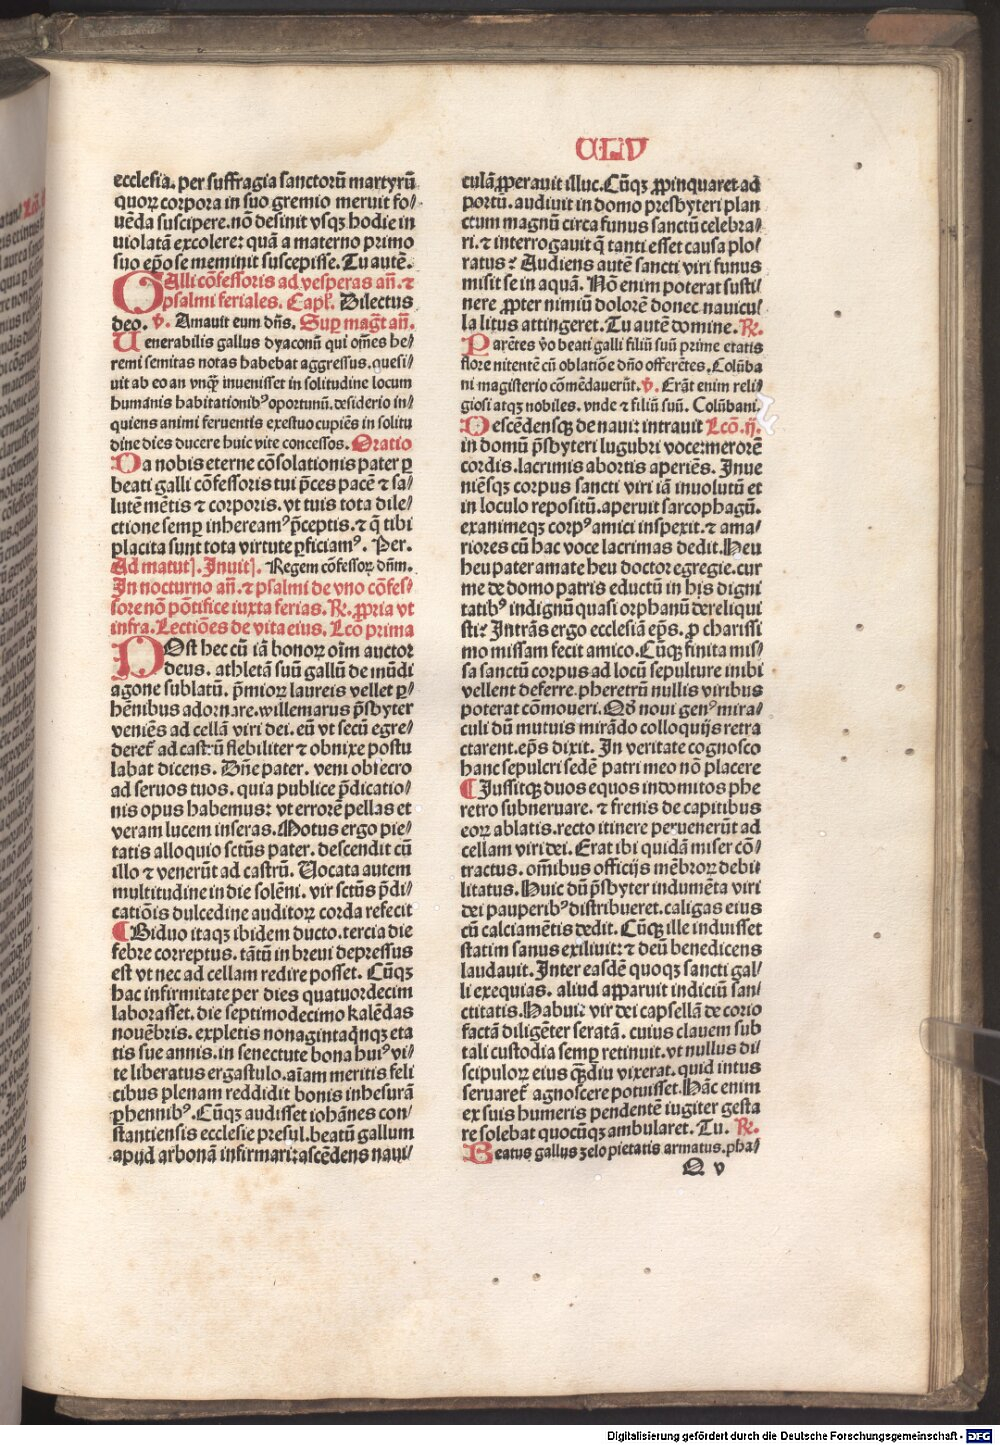 CLV
ecclesia. per suffragia sanctorū martyrū
quoꝝ corpora in suo gremio meruit fo⸗
uēda suscipere. nō desinit vsqꝫ hodie in
uiolatā excolere: quā a materno primo
suo ep̄o se meminit suscepisse. Tu autē.
GAlli cōfessoris ad vesperas an̄. ⁊
psalmi feriales. Capl̓. Dilectus
deo. v̓. Amauit eum dn̄s. Suꝑ magt̄ an̄.
Uenerabilis gallus dyaconū qui om̄es he⸗
remi semitas notas habebat aggressus. quesi⸗
uit ab eo an vnqꝫ inuenisset in solitudine locum
humanis habitationibꝰ oportunū. desiderio in⸗
quiens animi feruentis exestuo cupiēs in solitu
dine dies ducere huic vite concessos. Oratio
DA nobis eterne cōsolationis pater ꝑ
beati galli cōfessoris tui p̄ces pacē ⁊ sa⸗
lutē mētis ⁊ corporis. vt tuis tota dile⸗
ctione semꝑ inheream̓ p̄ceptis. ⁊ q̄ tibi
placita sunt tota virtute ꝑficiamꝰ. Per.
Ad matut̓. Inuit̓. Regem cōfessoꝝ dn̄m.
In nocturno an̄. ⁊ psalmi de vno cōfes⸗
sore nō pōtifice iuxta ferias. R̓. ꝓpria vt
infra. Lectiōes de vita eius. Lcō prima
POst hec cū iā honoꝝ oīm auctor
deus. athletā suū gallū de mūdi
agone sublatū. p̄mioꝝ laureis vellet ꝑ⸗
hēnibus adornare. willemarus p̄sbyter
veniēs ad cellā viri dei. eū vt secū egre⸗
deret̓ ad castrū flebiliter ⁊ obnixe postu
labat dicens. Dn̄e pater. veni obsecro
ad seruos tuos. quia publice p̄dicatio⸗
nis opus habemus: vt errorē pellas et
veram lucem inseras. Motus ergo pie⸗
tatis alloquio sctūs pater. descendit cū
illo ⁊ venerūt ad castrū. Uocata autem
multitudine in die solēni. vir sctūs p̄di⸗
catiōis dulcedine auditoꝝ corda refecit
¶ Biduo itaqꝫ ibidem ducto. tercia die
febre correptus. tātū in breui depressus
est vt nec ad cellam redire posset. Cūqꝫ
hac infirmitate per dies quatuordecim
laborasset. die septimodecimo kalēdas
nouēbris. expletis nonagintaqnqꝫ eta
tis sue annis. in senectute bona huiꝰ vi⸗
te liberatus ergastulo. aīam meritis feli
cibus plenam reddidit bonis inhesurā
ꝑhennibꝰ. Cūqꝫ audisset iohānes con⸗
stantiensis ecclesie presul. beatū gallum
apud arbonā infirmari: ascēdens naui⸗
culā. ꝓperauit illuc. Cūqꝫ ꝓpinquaret ad
portū. audiuit in domo presbyteri plan
ctum magnū circa funus sanctū celebra⸗
ri. ⁊ interrogauit q̄ tanti esset causa plo⸗
ratus? Audiens autē sancti viri funus
misit se in aquā. Nō enim poterat susti⸗
nere ꝓpter nimiū dolorē donec nauicul
la litus attingeret. Tu autē domine. R̓.
Parētes v̓o beati galli filiū suū prime etatis
flore nitentē cū oblatiōe dn̄o offerētes. Colūba
ni magisterio cōmēdauerūt. v̓. Erāt enim reli⸗
giosi atqꝫ nobiles. vnde ⁊ filiū suū. Colūbani.
DEscēdensqꝫ de naui: intrauit Lcō. ij.
in domū p̄sbyteri lugubri voce: merorē
cordis. lacrimis abortis aperiēs. Inue
niēsqꝫ corpus sancti viri iā inuolutū et
in loculo repositū. aperuit sarcophagū.
exanimeqꝫ corpꝰ amici inspexit. ⁊ ama⸗
riores cū hac voce lacrimas dedit. Heu
heu pater amate heu doctor egregie. cur
me de domo patris eductū in his digni
tatibꝰ indignū quasi orphanū dereliqui
sti? Intrās ergo ecclesiā ep̄s. ꝓ charissi
mo missam fecit amico. Cūqꝫ finita mis⸗
sa sanctū corpus ad locū sepulture inibi
vellent deferre. pheretrū nullis viribus
poterat cōmoueri. Qd̄ noui genꝰ mira⸗
culi dū mutuis mirādo colloquijs retra
ctarent. ep̄s dixit. In veritate cognosco
hanc sepulcri sedē patri meo nō placere
¶ Jussitqꝫ duos equos indomitos phe
retro subneruare. ⁊ frenis de capitibus
eoꝝ ablatis. recto itinere peruenerūt ad
cellam viri dei. Erat ibi quidā miser cō⸗
tractus. om̄ibus officijs mēbroꝝ debi⸗
litatus. Huic dū p̄sbyter indumēta viri
dei pauperibꝰ distribueret. caligas eius
cū calciamētis dedit. Cūqꝫ ille induisset
statim sanus exiliuit: ⁊ deū benedicens
laudauit. Inter easdē quoqꝫ sancti gal⸗
li exequias. aliud apparuit indiciū san⸗
ctitatis. Habuit vir dei capsellā de corio
factā diligēter seratā. cuius clauem sub
tali custodia semꝑ retinuit. vt nullus di⸗
scipuloꝝ eius qꝫdiu vixerat. quid intus
seruaret̓ agnoscere potuisset. Hāc enim
ex suis humeris pendentē iugiter gesta
re solebat quocūqꝫ ambularet. Tu. R̓.
Beatus gallus zelo pietatis armatus. pha⸗
Q v
Digitalisierung gefördert durch die Deutsche Forschungsgemeinschaft - DFG